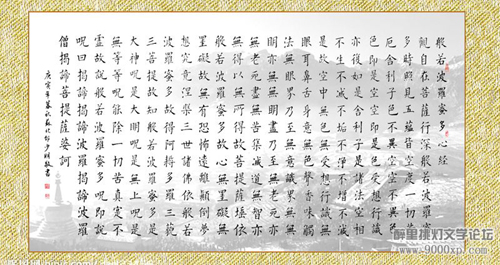 般若波羅蜜多心經
觀自在菩薩行深般若波羅蜜
多時照見五蘊皆空度一切苦
厄舍利子色不異空空不異色
色即是空空即是色受想行識
亦復如是舍利子是諸法空相
不生不滅不垢不淨不增不減
是故空中無色無受想行識無
眼耳鼻舌身意無色聲香味觸
法無眼界乃至無意識界無無
明亦無無明盡乃至無老死亦
無老死盡無苦集滅道無智亦
無得以無所得故菩提薩埵依
般若波羅蜜多故心無罣礙無
罣礙故無有恐怖遠離顛倒夢
想究竟涅槃三世諸佛依般若
波羅蜜多故得阿耨多羅三藐
三菩提故知般若波羅蜜多是
大神呪是大明呪是無上呪是
無等等呪能除一切苦真實不
虛故說般若波羅蜜多呪即說
呪曰揭諦揭諦波羅揭諦波羅
僧揭諦菩提薩婆訶
庚寅年暮秋敬書
醉里挑灯文学论坛
www.9000xp.com